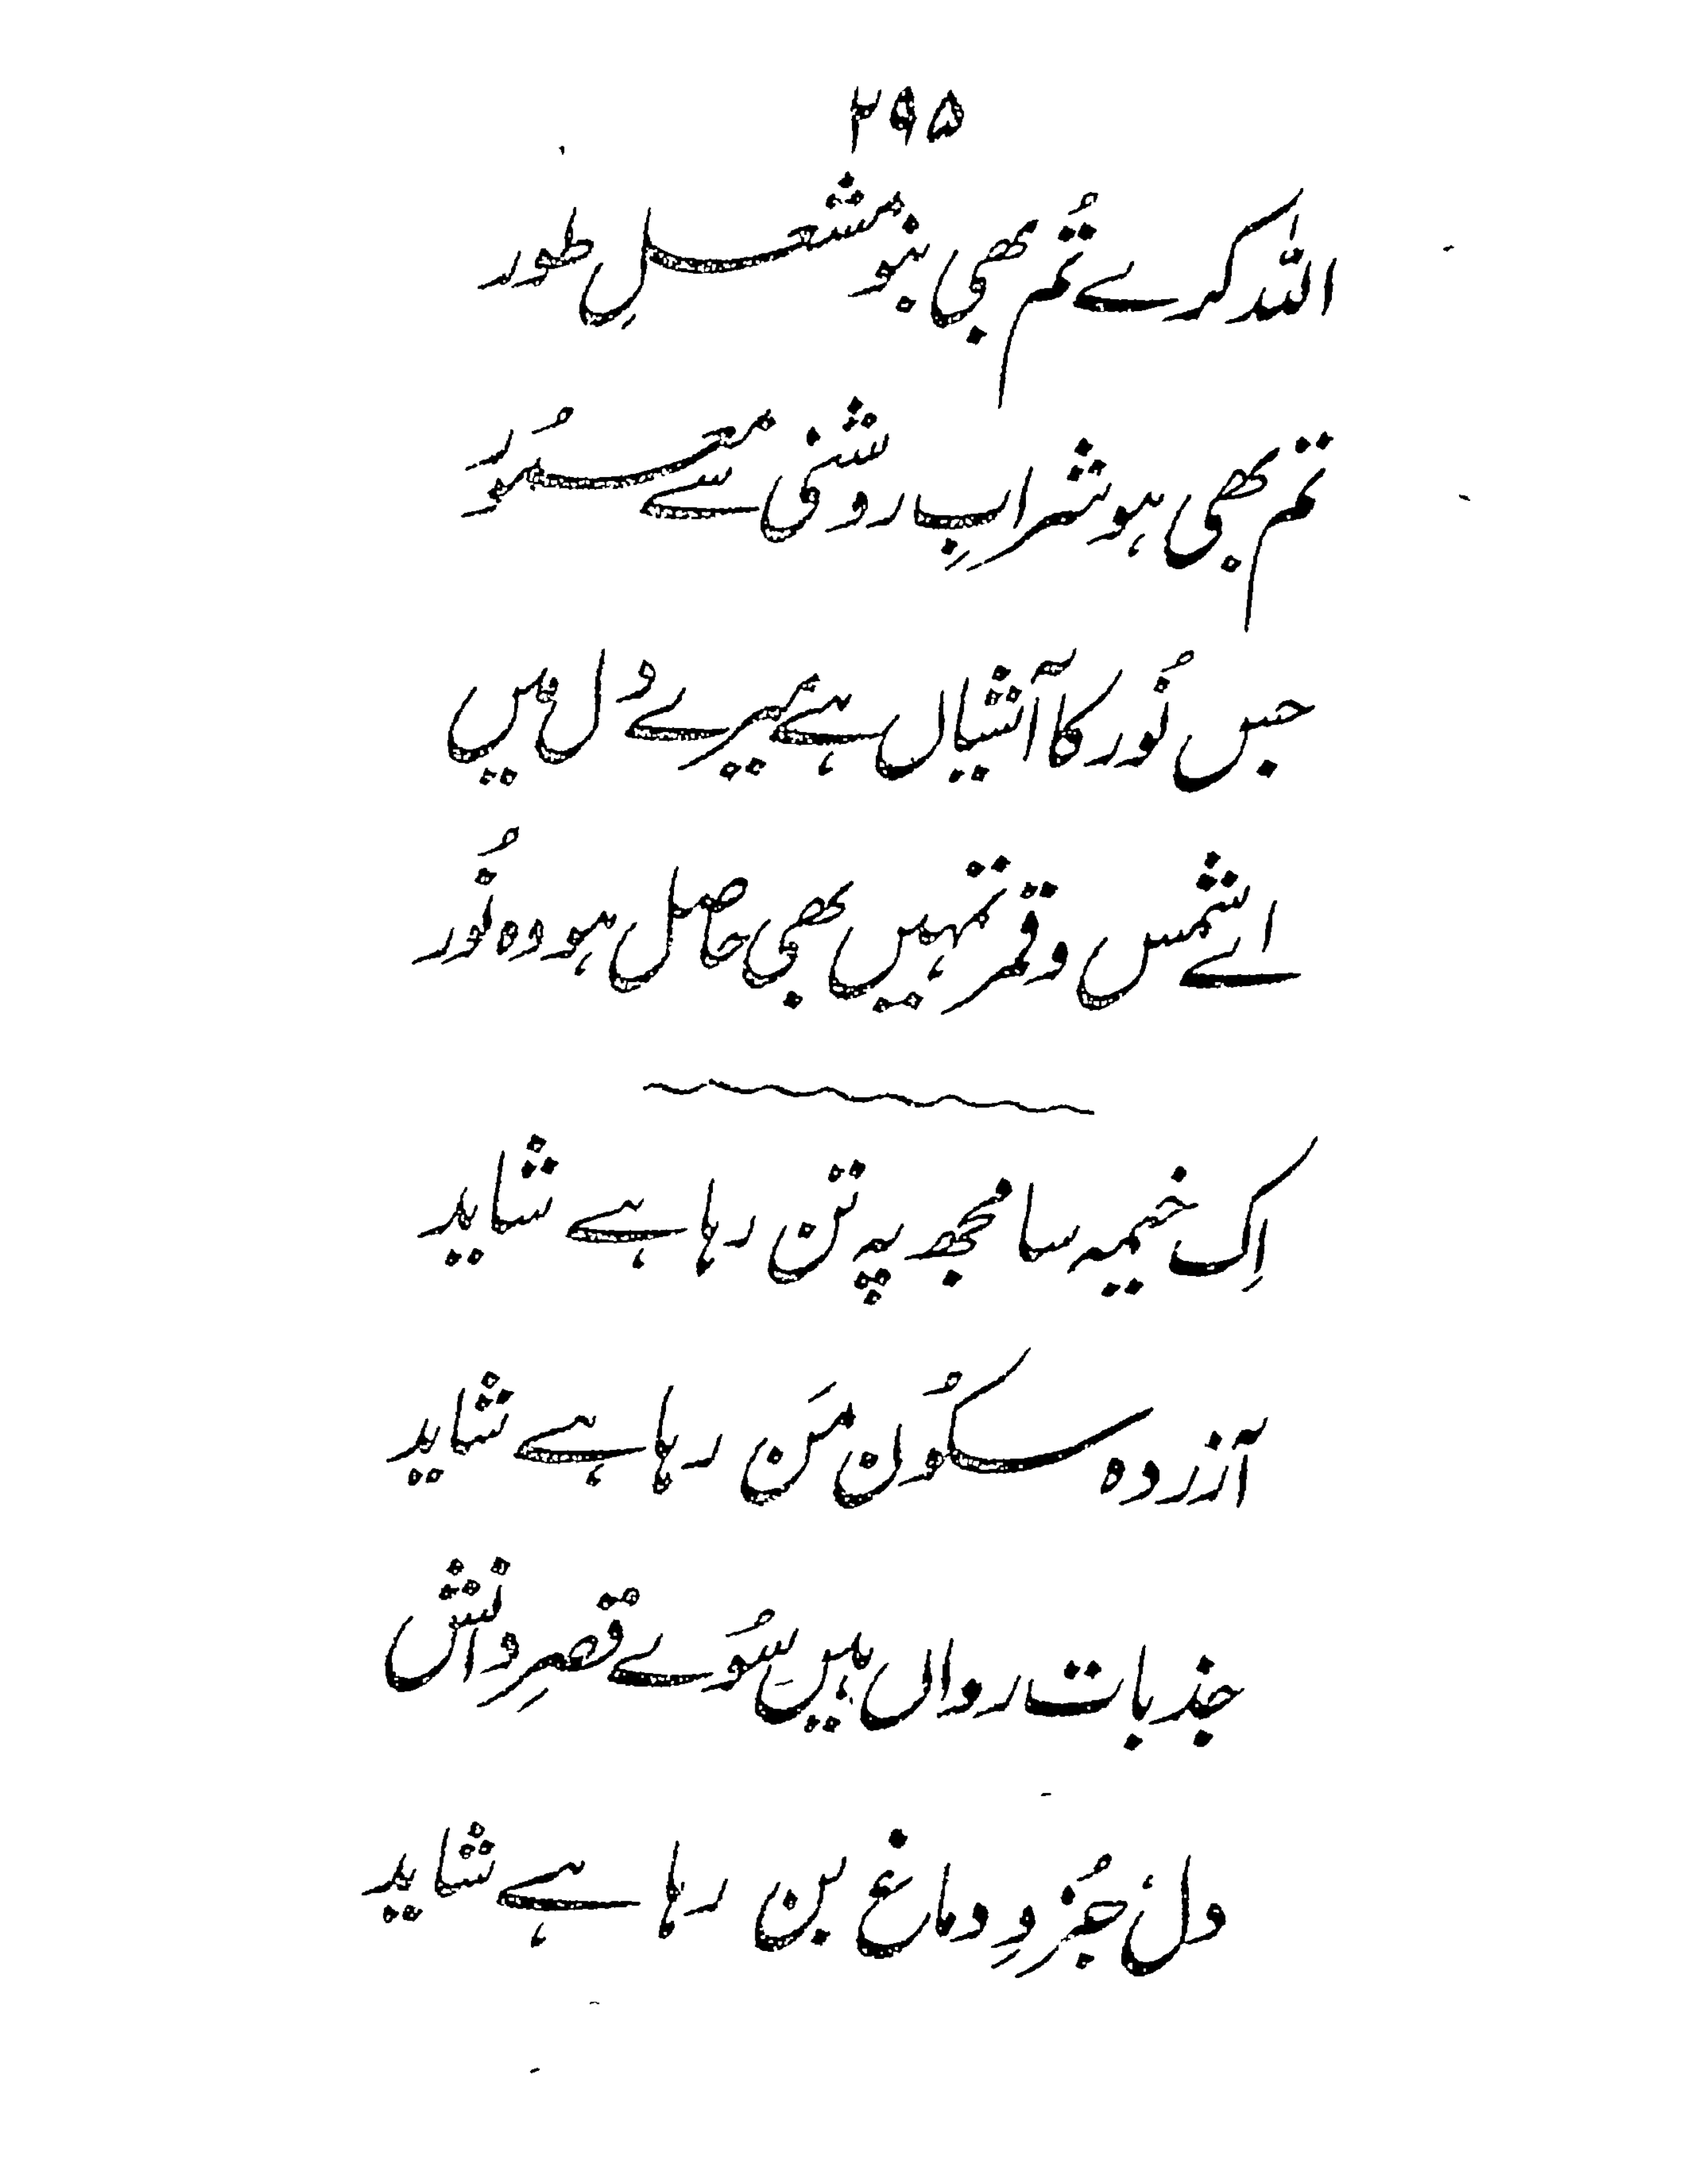 ۲۹۵
اللہ کرے تُم بھی بنو مشعلِ طور
تم بھی ہو شرابِ روشنی سے معمُور
جس نُور کا آشیاں ہے میرے دل میں
اے شمس و قمر تمہیں بھی حاصل ہو وہ نُور
اِک خیمہ سا مجھ پہ تن رہا ہے شاید
آزردہ سکُون مَن رہا ہے شاید
جذبات رواں ہیں سُوئے قصرِ دانش
دل جُزوِ دماغ بن رہا ہے شاید